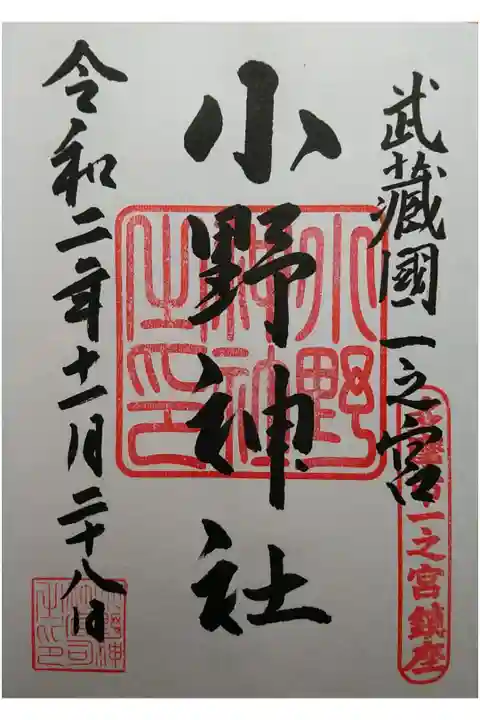 武蔵國一之宮
武蔵國一之宮鎮座
小野神社
小野神社之印
令和二年十一月二十八日